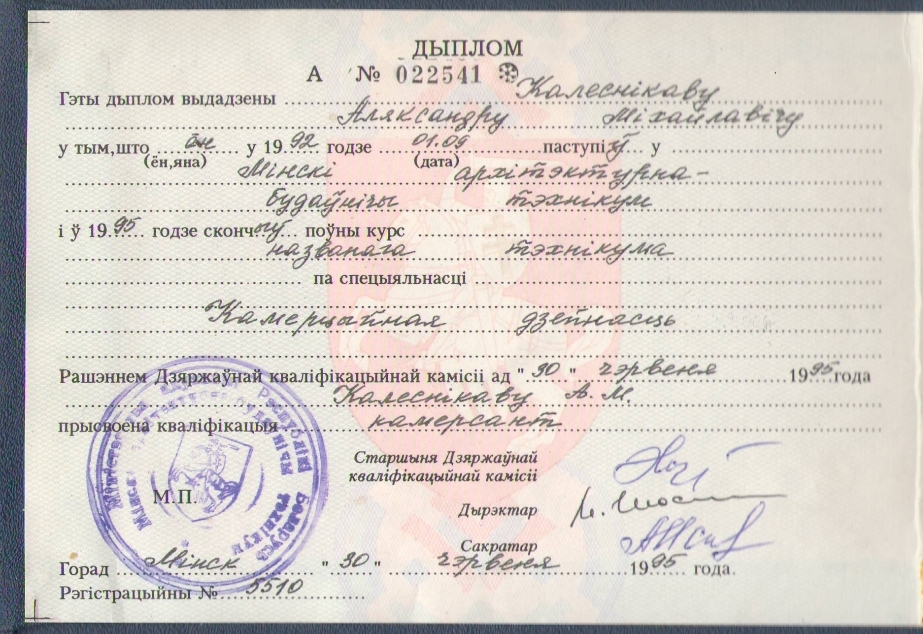 ДЫПЛОМ
А № 022541
Гэты дыплом выдадзены Калеснікаву
Аляксандру Міхайлавічу
у тым, што ён у 1992 годзе 01.09 паступіў у
(ён, яна) (дата)
Мінскі архітэктурна-
будаўнічы тэхнікум
і ў 1995 годзе скончыў поўны курс
названага тэхнікума
па спецыяльнасці
Камерцыйная дзейнасць
Рашэннем Дзяржаўнай кваліфікацыйнай камісіі ад "30" чэрвеня 1995 года
Калеснікаву А. М.
прысвоена кваліфікацыя камерсант
Старшыня Дзяржаўнай
кваліфікацыйнай камісіі
М.П.
Дырэктар
Сакратар
Горад Мінск "30" чэрвеня 1995 года.
Рэгістрацыйны № 5510